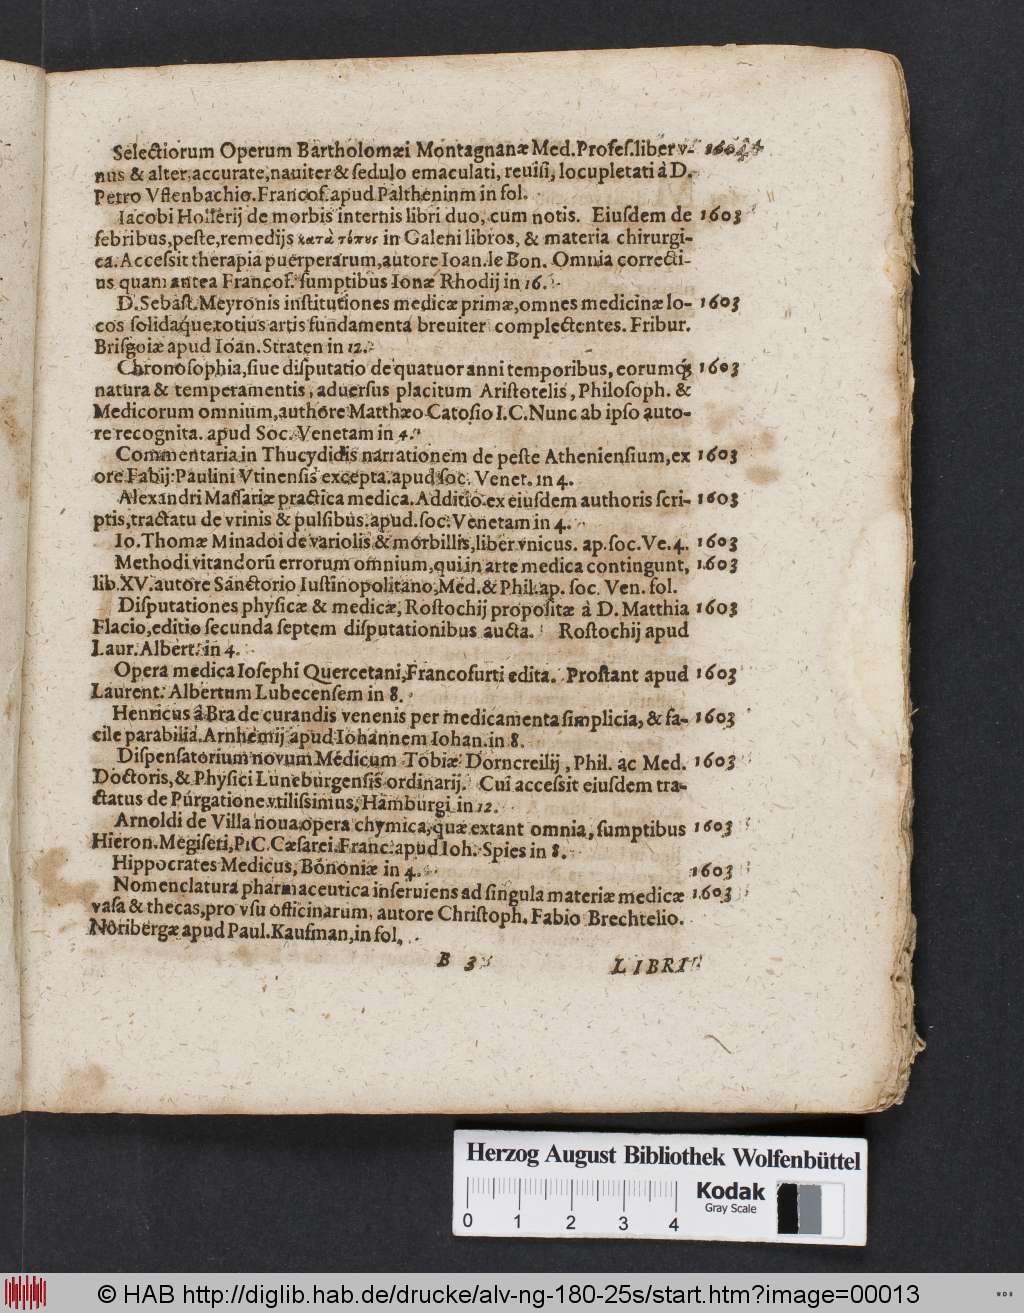 Selectiorum Operum Bartholomæi Montagnanæ Med.Profeſ.liber v- 1604
nus & alter,accurate,nauiter & ſedulo emaculati, reuiſi, locupletati à D.
Petro Vffenbachio.Francof.apud Paltheninm in fol.
Iacobi Hollerij de morbis internis libri duo, cum notis. Eiuſdem de 1603
febribus,peſte,remedijs κατὰ τόπυς in Galeni libros, & materia chirurgi-
ca.Acceſsit therapia puerperarum,autore Ioan.le Bon. Omnia correcti-
us quam antea Francof. ſumptibus Ionæ Rhodij in 16.
D.Sebaſt.Meyronis inſtitutiones medicæ primæ,omnes medicinæ lo- 1603
cos ſolidaq́ue totius artis fundamenta breuiter complectentes. Fribur.
Briſgoiæ apud Ioan.Straten in 12.
Chronoſophia,ſiue diſputatio de quatuor anni temporibus, eorumq́; 1603
natura & temperamentis, aduerſus placitum Ariſtotelis, Philoſoph. &
Medicorum omnium,authore Matthæo Catoſio I.C.Nunc ab ipſo auto-
re recognita. apud Soc. Venetam in 4.
Commentaria in Thucydidis narrationem de peſte Athenienſium,ex 1603
ore Fabij Paulini Vtinenſis excepta.apud ſoc. Venet. in 4.
Alexandri Maſſariæ practica medica. Additio ex eiuſdem authoris ſcri- 1603
ptis,tractatu de vrinis & pulſibus.apud.ſoc.Venetam in 4.
Io.Thomæ Minadoi de variolis & morbillis,liber vnicus. ap.ſoc.Ve.4. 1603
Methodi vitandorũ errorum omnium,qui in arte medica contingunt, 1603
lib.XV.autore Sanctorio Iuſtinopolitano,Med.& Phil.ap. ſoc. Ven. fol.
Diſputationes phyſicæ & medicæ, Roſtochij propoſitæ à D. Matthia 1603
Flacio,editio ſecunda ſeptem diſputationibus aucta. Roſtochij apud
Laur. Albert. in 4.
Opera medica Ioſephi Quercetani,Francofurti edita. Proſtant apud 1603
Laurent. Albertum Lubecenſem in 8.
Henricus à Bra de curandis venenis per medicamenta ſimplicia, & fa- 1603
cile parabilia.Arnhemij apud Iohannem Iohan.in 8.
Diſpenſatorium novum Medicum Tobiæ Dorncreilij, Phil. ac Med. 1603
Doctoris,& Phyſici Luneburgenſis ordinarij. Cui acceſsit eiuſdem tra-
ctatus de Purgatione vtiliſsimus, Hamburgi in 12.
Arnoldi de Villa noua opera chymica,quæ extant omnia, ſumptibus 1603
Hieron.Megiſeri,P.C.Cæſarei.Franc.apud Ioh. Spies in 8.
Hippocrates Medicus, Bononiæ in 4. 1603
Nomenclatura pharmaceutica inſeruiens ad ſingula materiæ medicæ 1603
vaſa & thecas,pro vſu officinarum, autore Chriſtoph. Fabio Brechtelio.
Noribergæ apud Paul.Kaufman,in fol.
B 3 LIBRI
Herzog August Bibliothek Wolfenbüttel
Kodak
Gray Scale
0 1 2 3 4
© HAB http://diglib.hab.de/drucke/alv-ng-180-25s/start.htm?image=00013